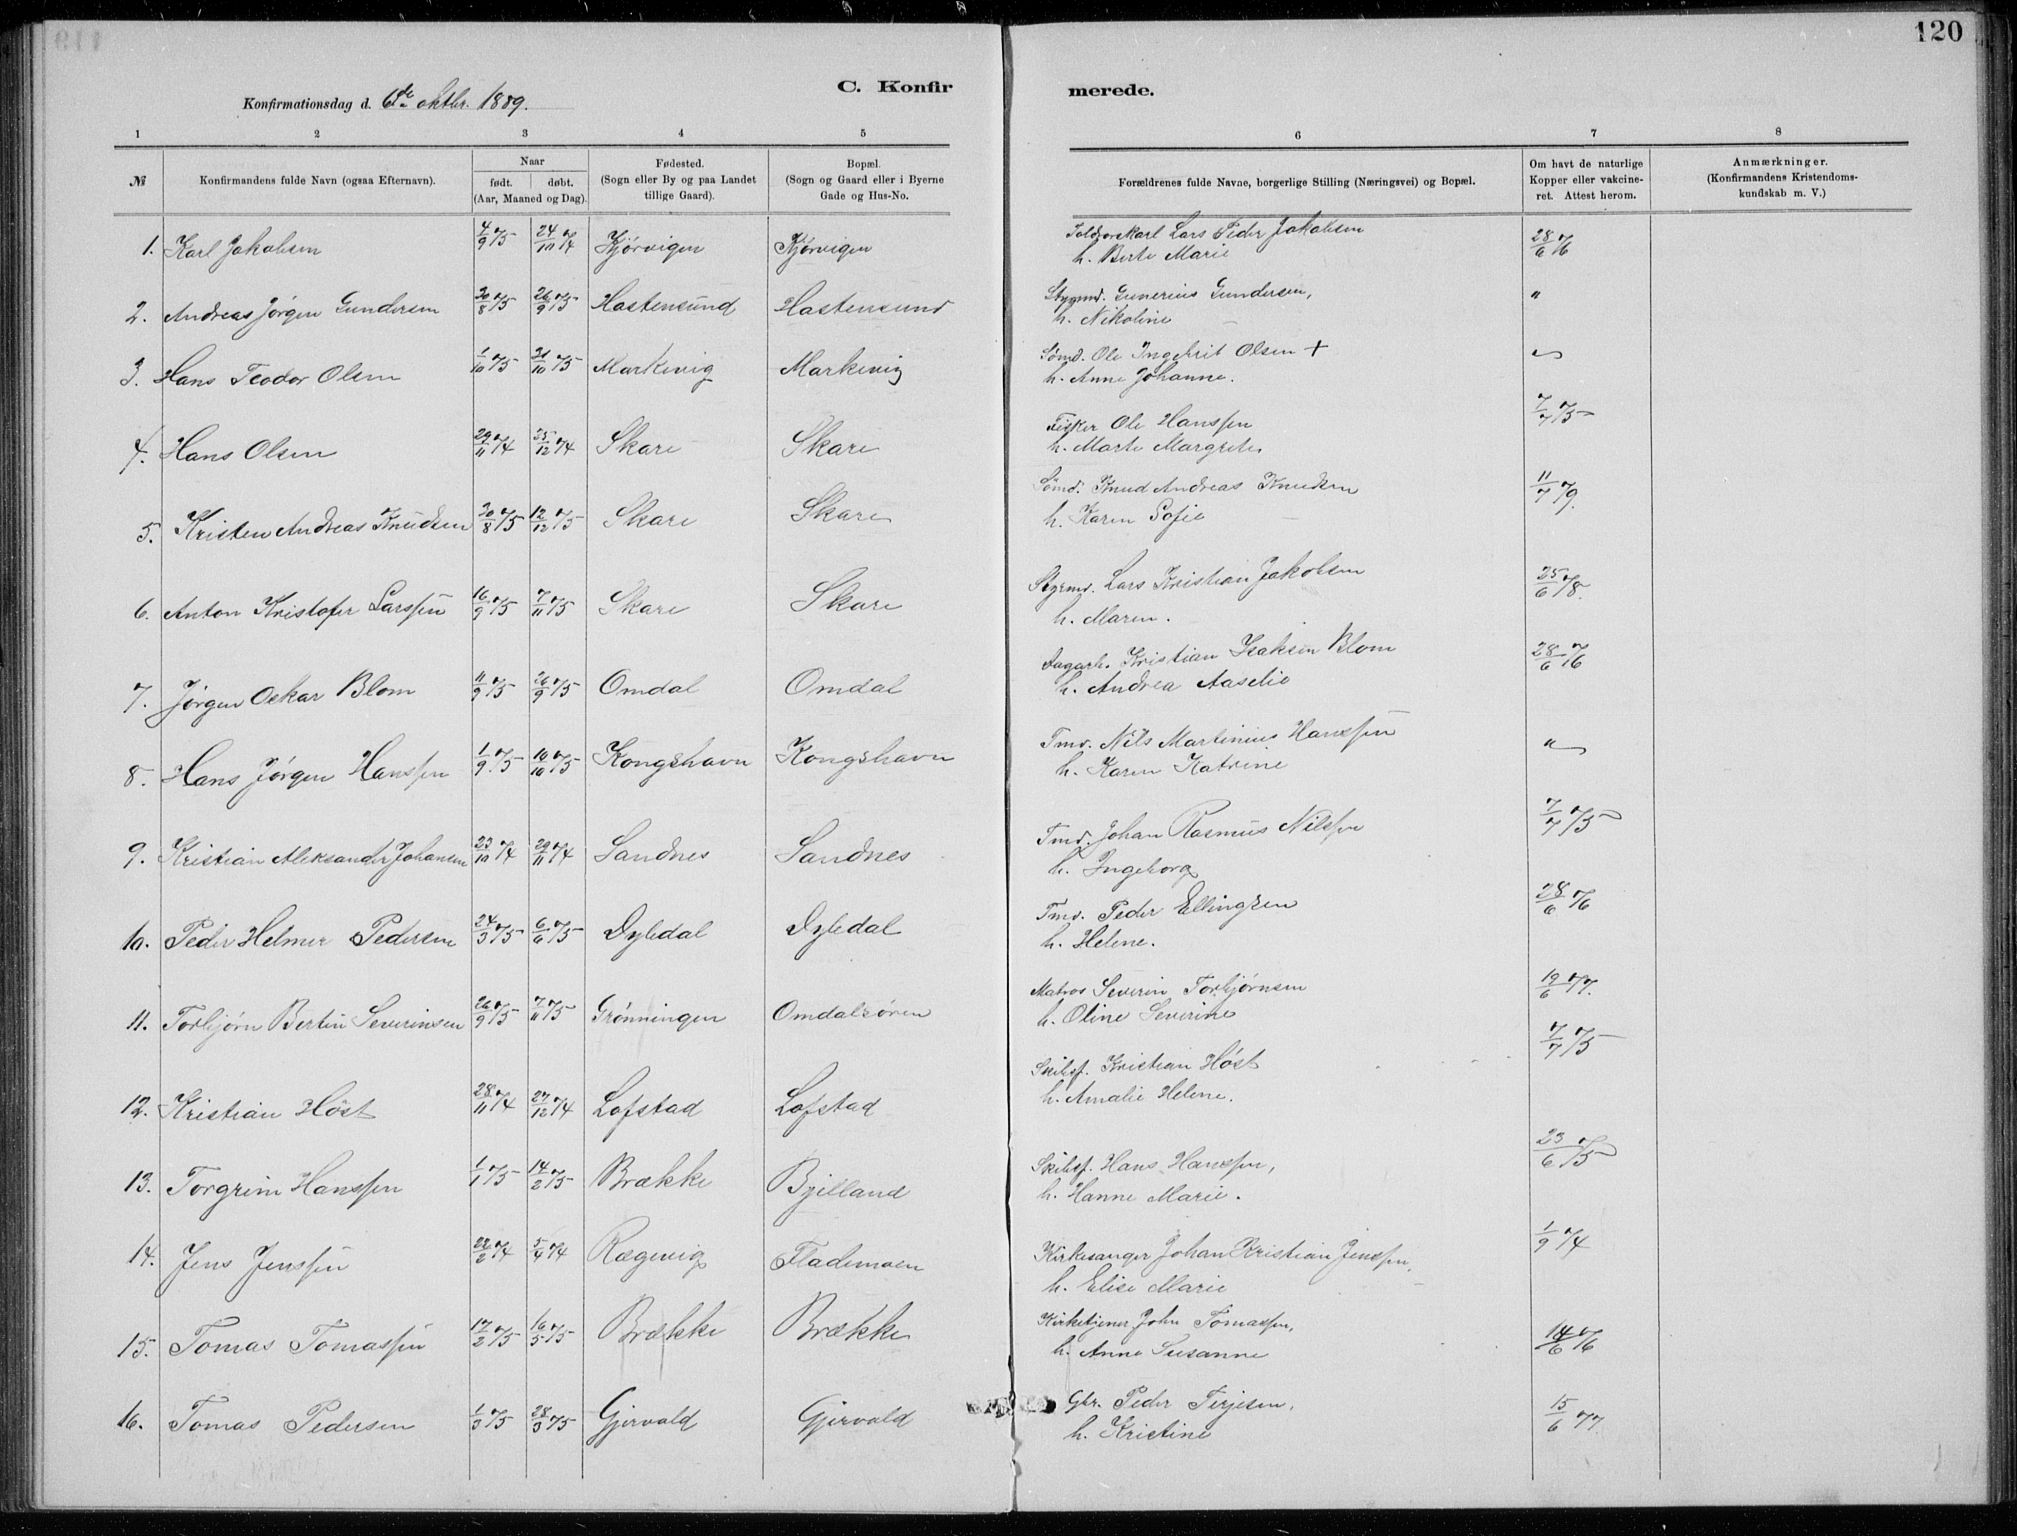 120
C. Konfir merede.
Konfirmationsdag d. 6te oktbr. 1889.
1 2 3 4 5 6 7 8
№ Konfirmandens fulde Navn (ogsaa Efternavn). Naar født. døbt. (Aar, Maaned og Dag). Fødested. (Sogn eller By og paa Landet tillige Gaard). Bopæl. (Sogn og Gaard eller i Byerne Gade og Hus-No. Forældrenes fulde Navne, borgerlige Stilling (Næringsvei) og Bopæl. Om havt de naturlige Kopper eller vakcineret. Attest herom. Anmærkninger. (Konfirmandens Kristendomskundskab m. V.)
1. Karl Jakobsen 4/9 75 24/10 74 Kjørvigen Kjørvigen Lars Peder Jakobsen 28/6 76
h. Berte Marie
2. Andreas Jørgen Gundersen 30/8 75 26/9 75 Hastensund Hastensund Stygmd. Gunerius Gundersen, "
h. Nikoline
3. Hans Teodor Olsen 1/10 75 31/10 75 Markevig Markevig Sømd. Ole Ingebrit Olsen + "
h. Anne Johanne.
4. Hans Olsen 29/11 74 25/12 74 Skare Skare Fisker Ole Hanssen 7/7 75
h. Marte Margrete
5. Kristen Andreas Knudsen 30/8 75 12/12 75 Skare Skare Sømd. Knud Andreas Knudsen 11/7 79.
h. Karen Sofie
6. Anton Kristofer Larssen 16/9 75 7/11 75 Skare Skare Styrmd. Lars Kristian Jakobsen 25/6 78.
h. Maren.
7. Jørgen Oskar Blom 11/9 75 26/9 75 Omdal Omdal Dagarb. Kristian Isaksen Blom 28/6 76
h. Andrea Aaselie
8. Hans Jørgen Hanssen 1/9 75 10/10 75 Kongshavn Kongshavn Tmd. Nils Martinius Hanssen "
h. Karen Katrine
9. Kristian Aleksander Johansen 23/10 74 29/11 74 Sandnes Sandnes Tmd. Johan Rasmus Nilssen 7/7 75
h. Ingeborg
10. Peder Helmer Pedersen 24/3 75 6/6 75 Dybdal Dybdal Tmd. Peder Ellingsen 28/6 76
h. Helene.
11. Torbjørn Bertin Severinsen 26/9 75 7/11 75 Grønningen Omdalsøren Matros Severin Torbjørnsen 19/6 77.
h. Oline Severine
12. Kristian Høst 28/11 74 27/12 74 Lofstad Lofstad Skibsf. Kristian Høst 7/7 75
h. Amalie Helene.
13. Torgrim Hanssen 1/1 75 14/2 75 Brække Bjelland Skibsf. Hans Hanssen, 23/6 75
h. Hanne Marie.
14. Jens Jenssen 22/2 74 5/4 74 Rægevig Flademoen Kirkesanger Johan Kristian Jenssen, 1/9 74
h. Elise Marie
15. Tomas Tomassen 17/2 75 16/5 75 Brække Brække Kirketjener John Tomassen, 14/6 76
h. Anne Susanne
16. Tomas Pedersen 1/3 75 28/3 75 Gjervald Gjervald Gbr. Peder Terjesen, 15/6 77
h. Kristine